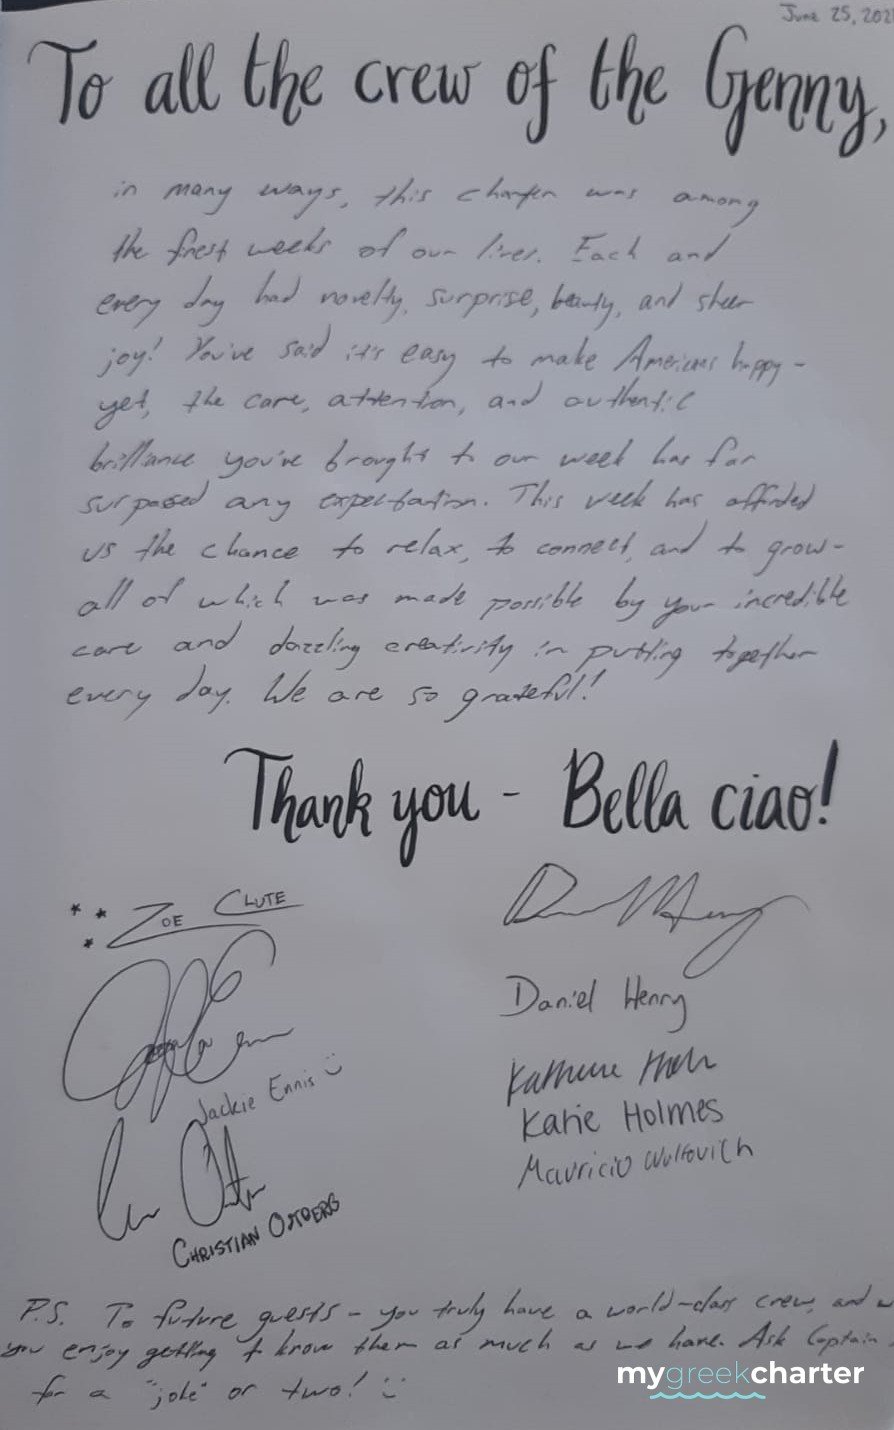 June 25, 202
To all the crew of the Genny,
in many ways, this charter was among
the finest weeks of our lives. Each and
every day had novelty, surprise, beauty, and sheer
joy! You've said it's easy to make Americans happy -
yet, the care, attention, and authentic
brilliance you've brought to our week has far
surpassed any expectation. This week has afforded
us the chance to relax, to connect, and to grow -
all of which was made possible by your incredible
care and dazzling creativity in putting together
every day. We are so grateful!
Thank you - Bella ciao!
ZOE CLUTE
Jackie Ennis
CHRISTIAN OSTBERG
Daniel Henry
Katie Holmes
Mauricio Wulfovich
P.S. To future guests - you truly have a world-class crew, and
you enjoy getting to know them as much as we have. Ask Captain
for a "joke" or two!
mygreekcharter